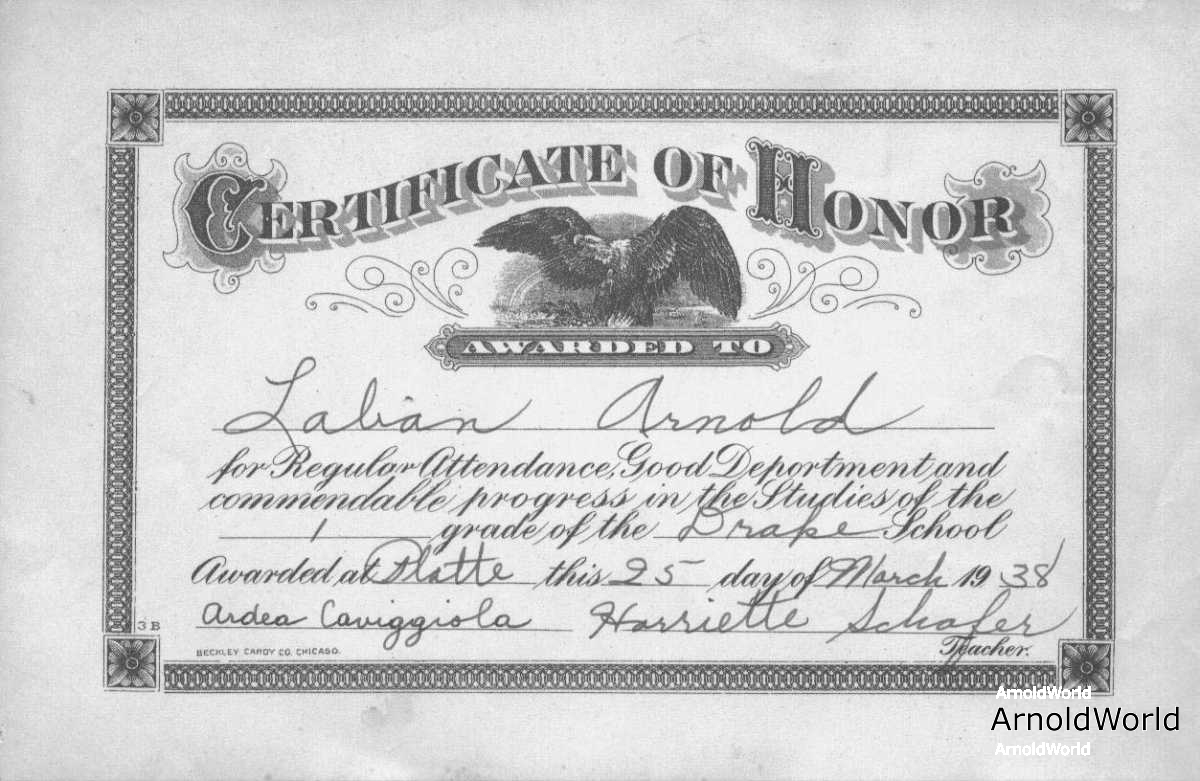 CERTIFICATE OF HONOR
AWARDED TO
Laban Arnold
for Regular Attendance, Good Deportment and
commendable progress in the Studies of the
1 grade of the Drape School
Awarded at Platte this 25 day of March 1938
Ardea Caviggiola Harriette Schafer
3B
BECKLEY CARDY CO. CHICAGO.
Teacher.
ArnoldWorld
ArnoldWorld
ArnoldWorld